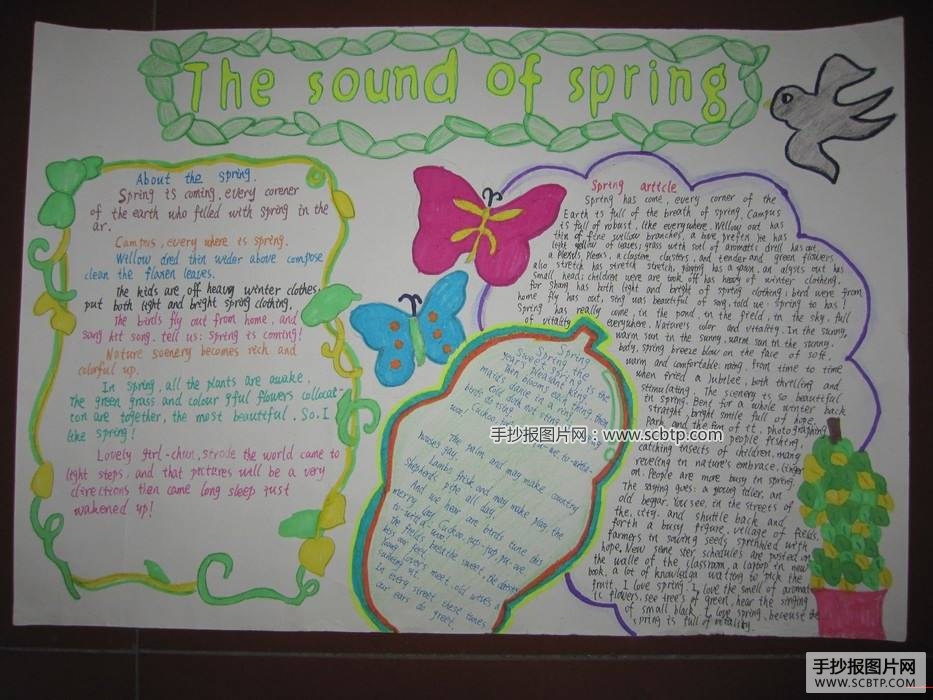 The sound of spring
About the spring.
Spring is coming, every corener
of the earth who filled with spring in the
ar.
Campus, every where is spring.
Willow dred thin wider above compose
clean the flanen leaves.
The kids are off heavy winter clothes.
put both light and bright spring clothing.
The birds fly out from home, and
song hit song. tell us: Spring is coming!
Nature scenery becomes rich and
colorful up.
In spring, all the plants are awake.
The green grass and colour gful flowers collocat-
ton are together, the most beautiful. So. I
like spring!
Lovely girl-chun, strode the world came to
light steps. and that pictures will be a very
directions then came long sleep just
wakened up!
Spring article
Spring has come, every corner of the
Earth is full of the breath of spring. Campus
is full of robust, like everywhere. Willow out has
thin of fine swillow branches, a have prefix he has
light yellow of leaves; grass with soil of aromatic drell has out,
a Plexus, Plexus, a clusten clusters, and tender and green flowers
also stretch has stretch stretch, playing has a yawn, an alyses out has
small head; children were are took off has heavy of winter clothing,
for shang has both light and bright of spring clothing; bird were from
home fly has out, sing was beautiful of song, told us: spring to has!
Spring has really come, in the pond, in the field, in the sky, full
of vitality everywhere. Nature's color and vitality. In the sunny,
warm sun in the sunny, warm sun in the sunny.
body, spring breeze blow on the face of soft,
warm and comfortable mang, from time to time
when fried a Jubilee, both thrilling and
stimulating. The scenery is so beautiful
in spring. Bent for a whole winter back
straight, bright smile full of hope.
Park and the fun of it. photographing
people fishing,
catching insects of children, many
reveling in nature's embrace, linger
on. People are more busy in spring.
The saying goes: a young idler, an
old beggar. You see, in the streets of
the city, and shuttle back and
forth a busy figure. village of fields,
farmers in sowing seeds, sprinkled with
hope. New seme ster, schedules are posted on
the walle of the classroom, a laptop in new
book, a lot of knowledge waiting to pick the
fruit. I love spring. I love the smell of aromat
ic flowers, see trees of green, hear the singing
of small black I love spring, because the
spring is full of vitality.
Spring
Spring, the
sweet spring, is the
year's pleasant king,
Then blooms each thing, then
maids dance in a ring
Cold doth not sting, the pretty
birds do sing
Cuckoo, jug-jug, pu-we, to-witta-
woo!
The palm and may make country
houses gay,
Lambs frisk and play, the
shepherds pipe all day,
And we hear aye birds tune this
merry lay, Cuckoo, jug-jug, pu-we,
to-witta-woo!
The fields breathe sweet, the daisies
kiss our feet,
Young lovers meet, old wives a
sunning sit,
In every street these tunes
our ears do greet,
手抄报图片网：www.scbtp.com
手抄报图片网
WWW.SCBTP.COM